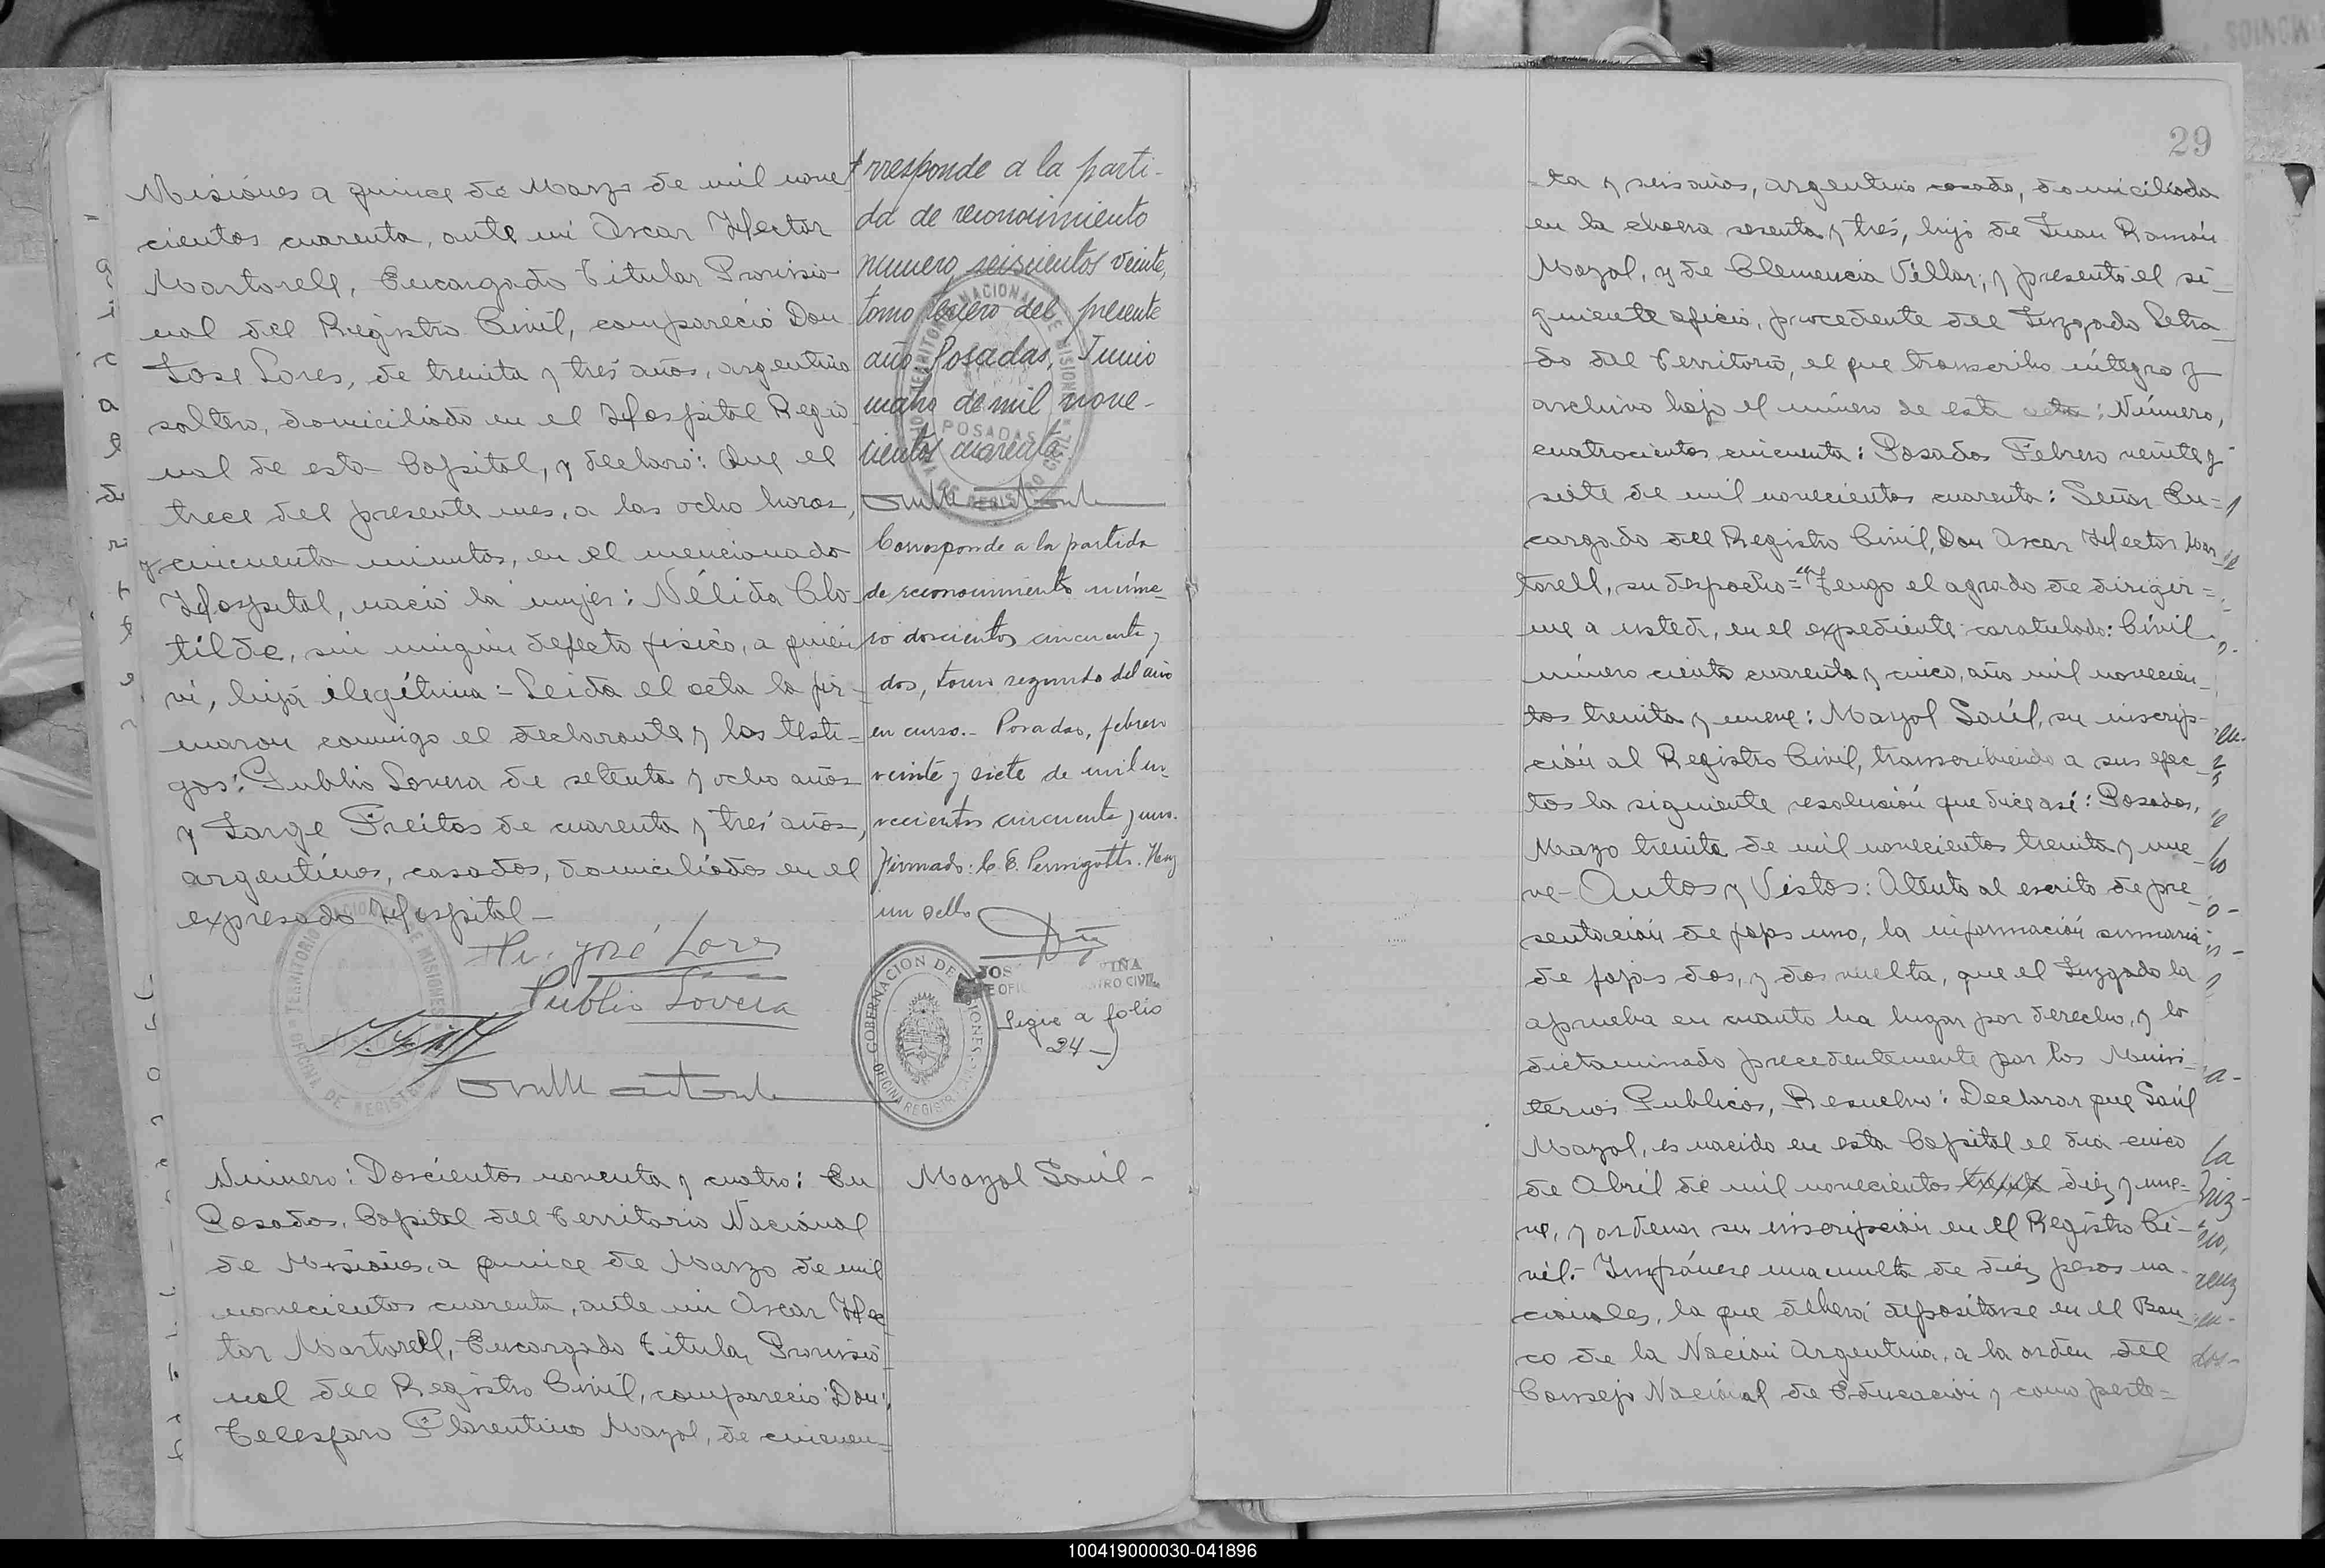 Misiones a quince de Marzo de mil nove
cientos cuarenta, ante mi Oscar Hector
Martorell, Encargado Titular Provisio-
nal del Registro Civil, compareció Don
José Lores, de treinta y tres años, argentino
soltero, domiciliado en el Hospital Regio-
nal de esta Capital, y declaró: Que el
trece del presente mes, a las ocho horas,
y cincuenta minutos, en el mencionado
Hospital, nació la mujer: Nélida Clo-
tilde, sin ningún defecto fisico, a quien
vi, hija ilegítima:- Leida el acta la fir-
maron conmigo el declarante y los testi-
gos: Publio Lovera de setenta y ocho años
y Jorge Freitas de cuarenta y tres años,
argentinos, casados, domiciliados en el
expresado Hospital-
José Lores
Publio Lovera
rresponde a la parti-
da de reconocimiento
numero seiscientos veinte,
tomo tercero del presente
año Posadas, Junio
cuatro de mil nove-
cientos cuarenta.
TERRITORIO NACIONAL DE MISIONES
POSADAS
OFICINA DE REGISTRO CIVIL
Corresponde a la partida
de reconocimiento núme-
ro doscientos cincuenta y
dos, tomo segundo del año
en curso.- Posadas, febrero
veinte y siete de mil no-
vecientos cincuenta y uno.
Firmado: C. E. Hay
un sello
GOBERNACION DE MISIONES
Sigue a folio
24-
Número: Doscientos noventa y cuatro: En
Posadas, Capital del Territorio Nacional
de Misiones, a quince de Marzo de mil
novecientos cuarenta, ante mi Oscar Hec-
tor Martorell, Encargado Titular Provisio-
nal del Registro Civil, compareció Don:
Telesforo Florentino Mazol, de cincuen-
Mazol Saúl-
29
-ta y seis años, argentino casado, domiciliado
en la chacra sesenta y tres, hijo de Juan Ramón
Mazol, y de Clemencia Villar; y presentó el si-
guiente oficio, procedente del Juzgado Letra-
do del Territorio, el que transcribo integro y
archivo bajo el número de esta acta: Número,
cuatrocientos cincuenta: Posadas Febrero veinte y
siete de mil novecientos cuarenta: Señor En-
cargado del Registro Civil, Don Oscar Hector Mar-
torell, su despacho= "Tengo el agrado de dirigir=
me a usted, en el expediente caratulado: Civil
número ciento cuarenta y cinco, año mil novecien-
tos treinta y nueve: Mazol Saúl, su inscrip-
ción al Registro Civil, transcribiendo a sus efec-
tos la siguiente resolución que dice asi: Posadas,
Mayo treinta de mil novecientos treinta y nue-
ve- Autos y Vistos: Atento al escrito de pre-
sentación de fojas uno, la información sumaria
de fojas dos, y dos vuelta, que el Juzgado la
aprueba en cuanto ha lugar por derecho, y lo
dictaminado precedentemente por los Minis-
terios Publicos, Resuelvo: Declarar que Saúl
Mazol, es nacido en esta Capital el dia cinco
de Abril de mil novecientos treinta diez y nue-
ve, y ordenar su inscripción en el Registro Ci-
vil.- Impónese una multa de diez pesos na-
cionales, la que deberá depositarse en el Ban-
co de la Nación Argentina, a la orden del
Consejo Nacional de Educación y como perte=
100419000030-041896